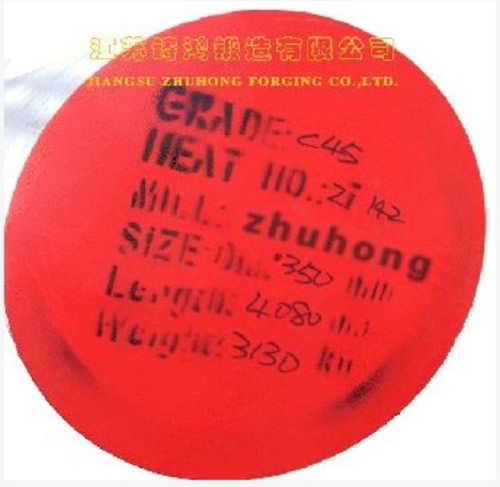 江苏诗鸿锻造有限公司
JIANGSU ZHUHONG FORGING CO.,LTD.
GRADE: C45
HEAT NO.: 2T142
MILL: zhuhong
SIZE Dia: 350 mm
Length: 4.080 m
Weight: 3130